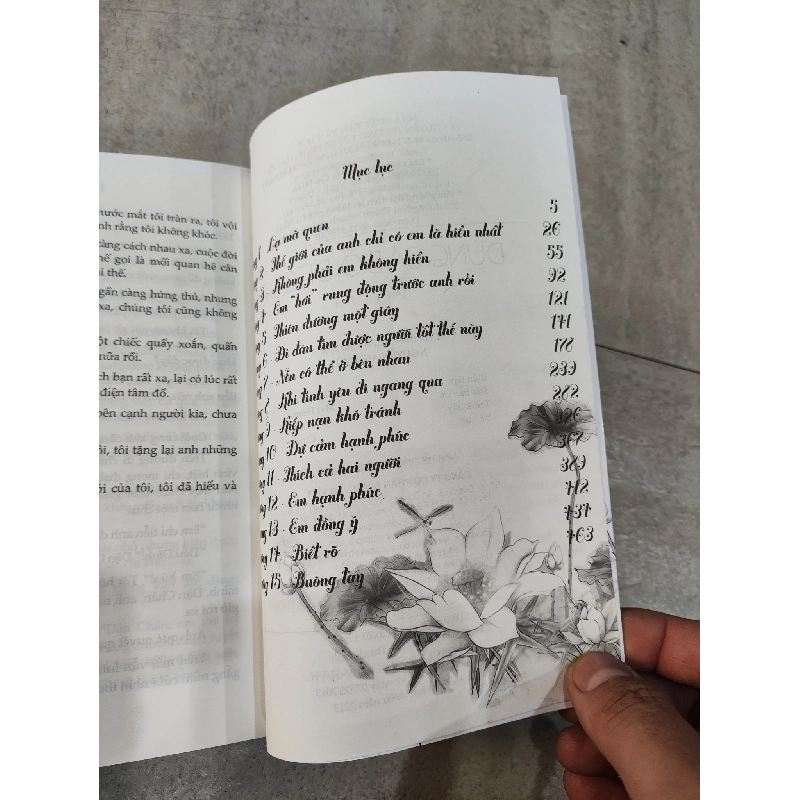 nước mắt tôi tràn ra, tôi vội
rằng tôi không khóc.
càng cách nhau xa, cuộc đời
gọi là mối quan hệ căn
thế.
gần càng hứng thú, nhưng
xa, chúng tôi cũng không
một chiếc quẩy xoắn, quấn
nữa rồi.
bạn rất xa, lại có lúc rất
điện tâm đồ.
bên cạnh người kia, chưa
tôi, tôi tặng lại anh những
của tôi, tôi đã hiểu và
Mục lục
1 - Lạ mà quen 5
2 - Thế giới của anh chỉ có em là hiểu nhất 26
3 - Không phải em không hiền 55
4 - Em "hơi" rung động trước anh rồi 92
5 - Thiên đường một giây 121
6 - Đi đâu tìm được người tốt thế này 141
7 - Nên có thể ở bên nhau 178
Khi tình yêu đi ngang qua 239
9 - Kiếp nạn khó tránh 282
10 - Dự cảm hạnh phúc 326
11 - Thích cả hai người 362
12 - Em hạnh phúc 389
13 - Em đồng ý 412
14 - Biết rõ 437
15 - Buông tay 463